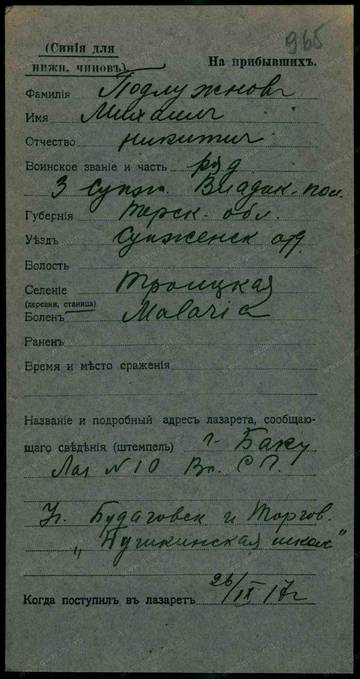 965
(Синія для
нижн. чиновъ).
На прибывшихъ.
Фамилія Подлужновъ
Имя Михаилъ
Отчество Никитич
Воинское званіе и часть ряд
3 Сунж. Владик. пол.
Губернія Терск. обл.
Уѣздъ Сунженск отд
Волость
Селеніе Троицкая
(деревня, станица)
Боленъ Malaria
Раненъ
Время и мѣсто сраженія
Названіе и подробный адресъ лазарета, сообщаю-
щаго свѣдѣнія (штемпель) г. Баку
Лаз N 10 Вс. С. Г.
Уг. Будаговск и Торгов.
„Пушкинская школа"
Когда поступилъ въ лазаретъ 26/IX 17 г